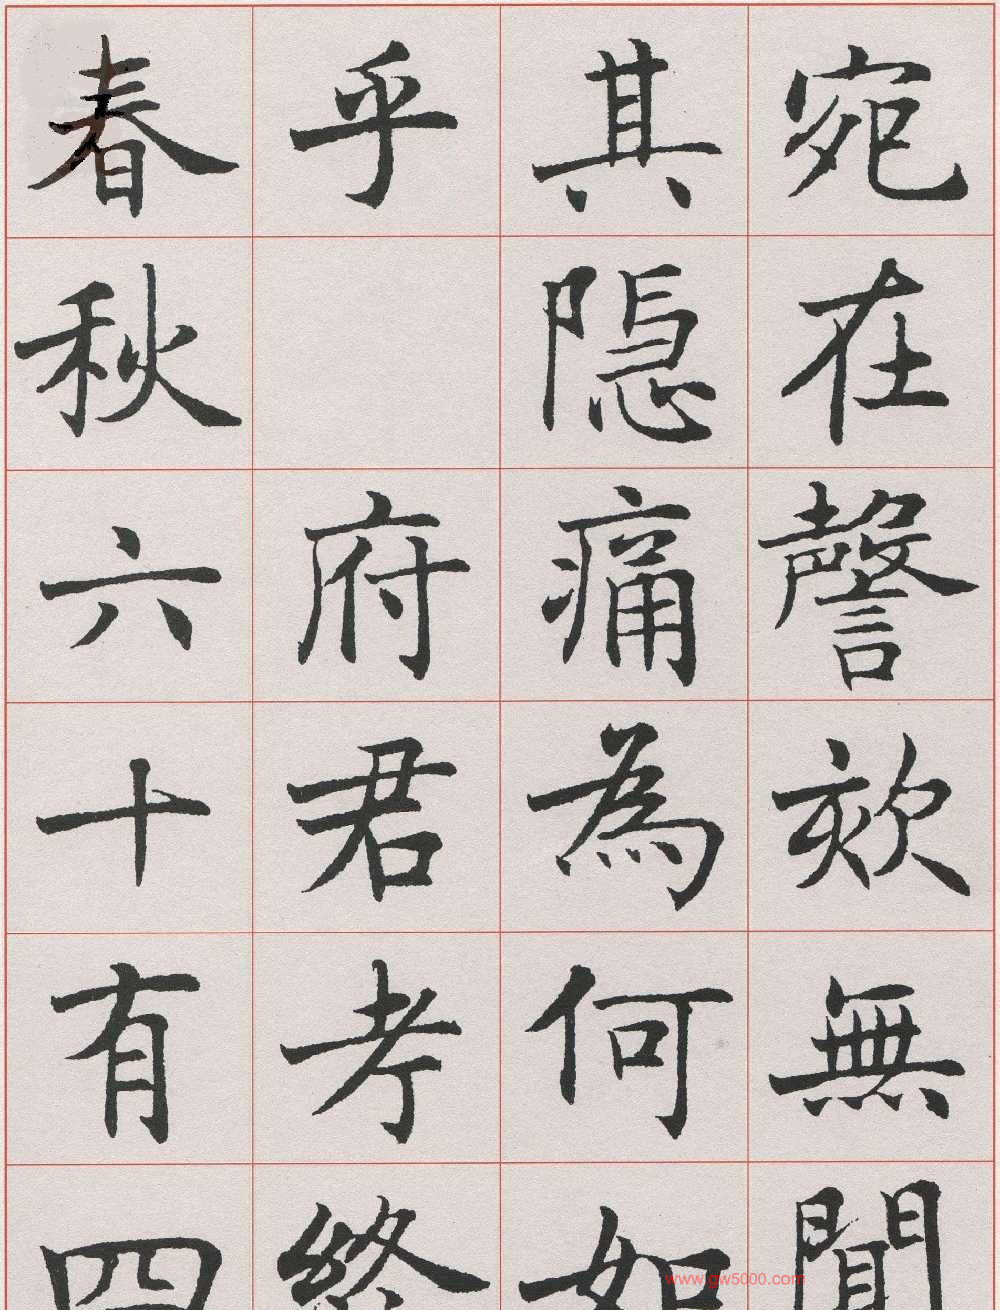 宛在謦欬無聞
其隐痛為何如
乎　府君考終
春秋六十有四
www.gw5000.com